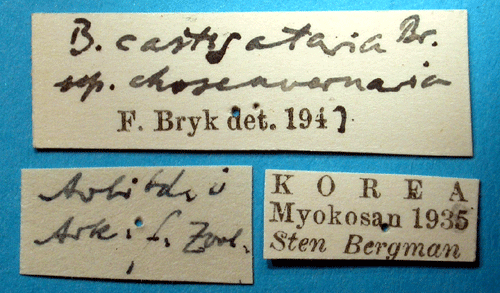 B. castigataria Br.
ssp. chosenvernaria
F. Bryk det. 1947
i
Ark. f. Zool.
K O R E A
Myokosan 1935
Sten Bergman